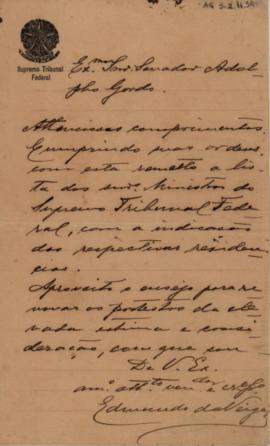 AG 3.2.11.50
Supremo Tribunal
Federal
Exmo Snr. Senador Adol-
pho Gordo.
Attenciosos comprimentos.
Cumprindo suas ordens,
com esta remetto a lis-
ta dos snrs. Ministros do
Supremo Tribunal Fede-
ral, com a indicação
das respectivas residen-
cias.
Aproveito o ensejo para re-
novar os protestos da ele-
vada estima e consi-
deração, com que sou
De V. Ex.
amo. attto. venor. e
Edmundo da Veiga